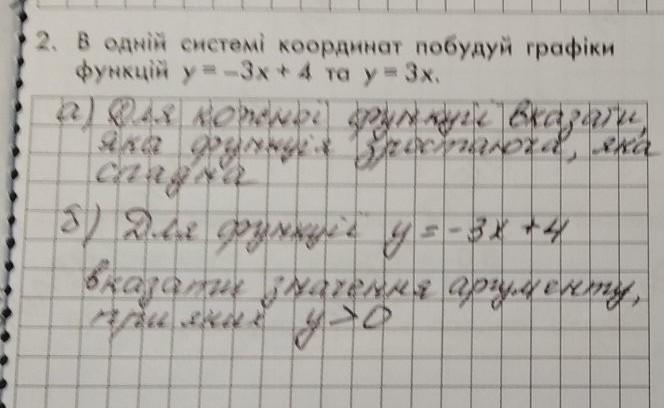 2. В одній системі координат побудуй графіки
функцій y = –3x + 4 та y = 3x.
а) Для кожної функції вказати,
яка функція зростаюча, яка
спадна
б) Для функції y = -3x + 4
вказати значення аргументу,
при яких y > 0